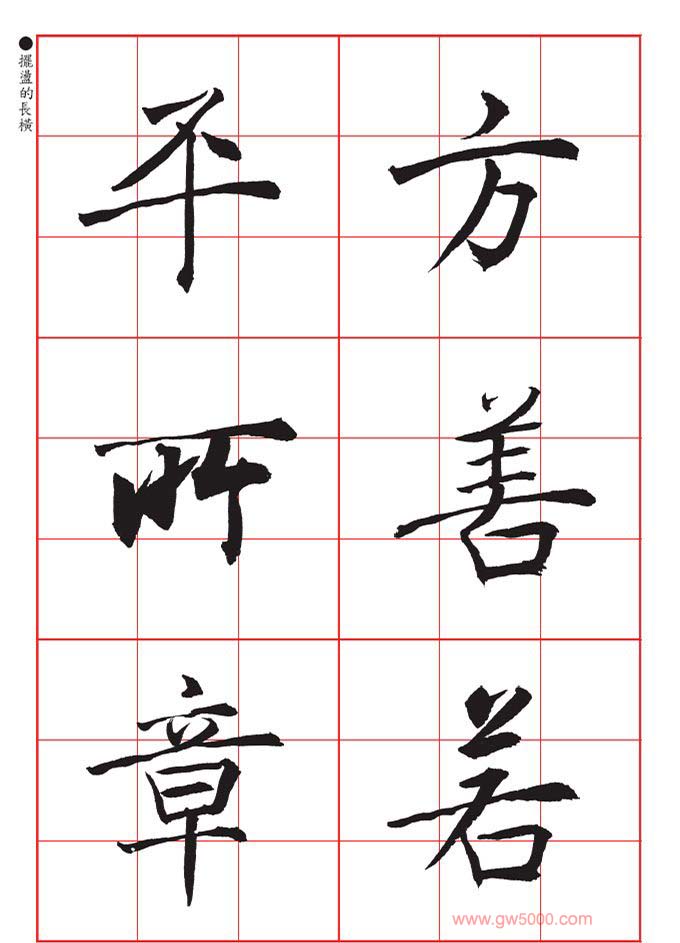 擺盪的長橫
方
善
若
平
所
章
www.gw5000.com